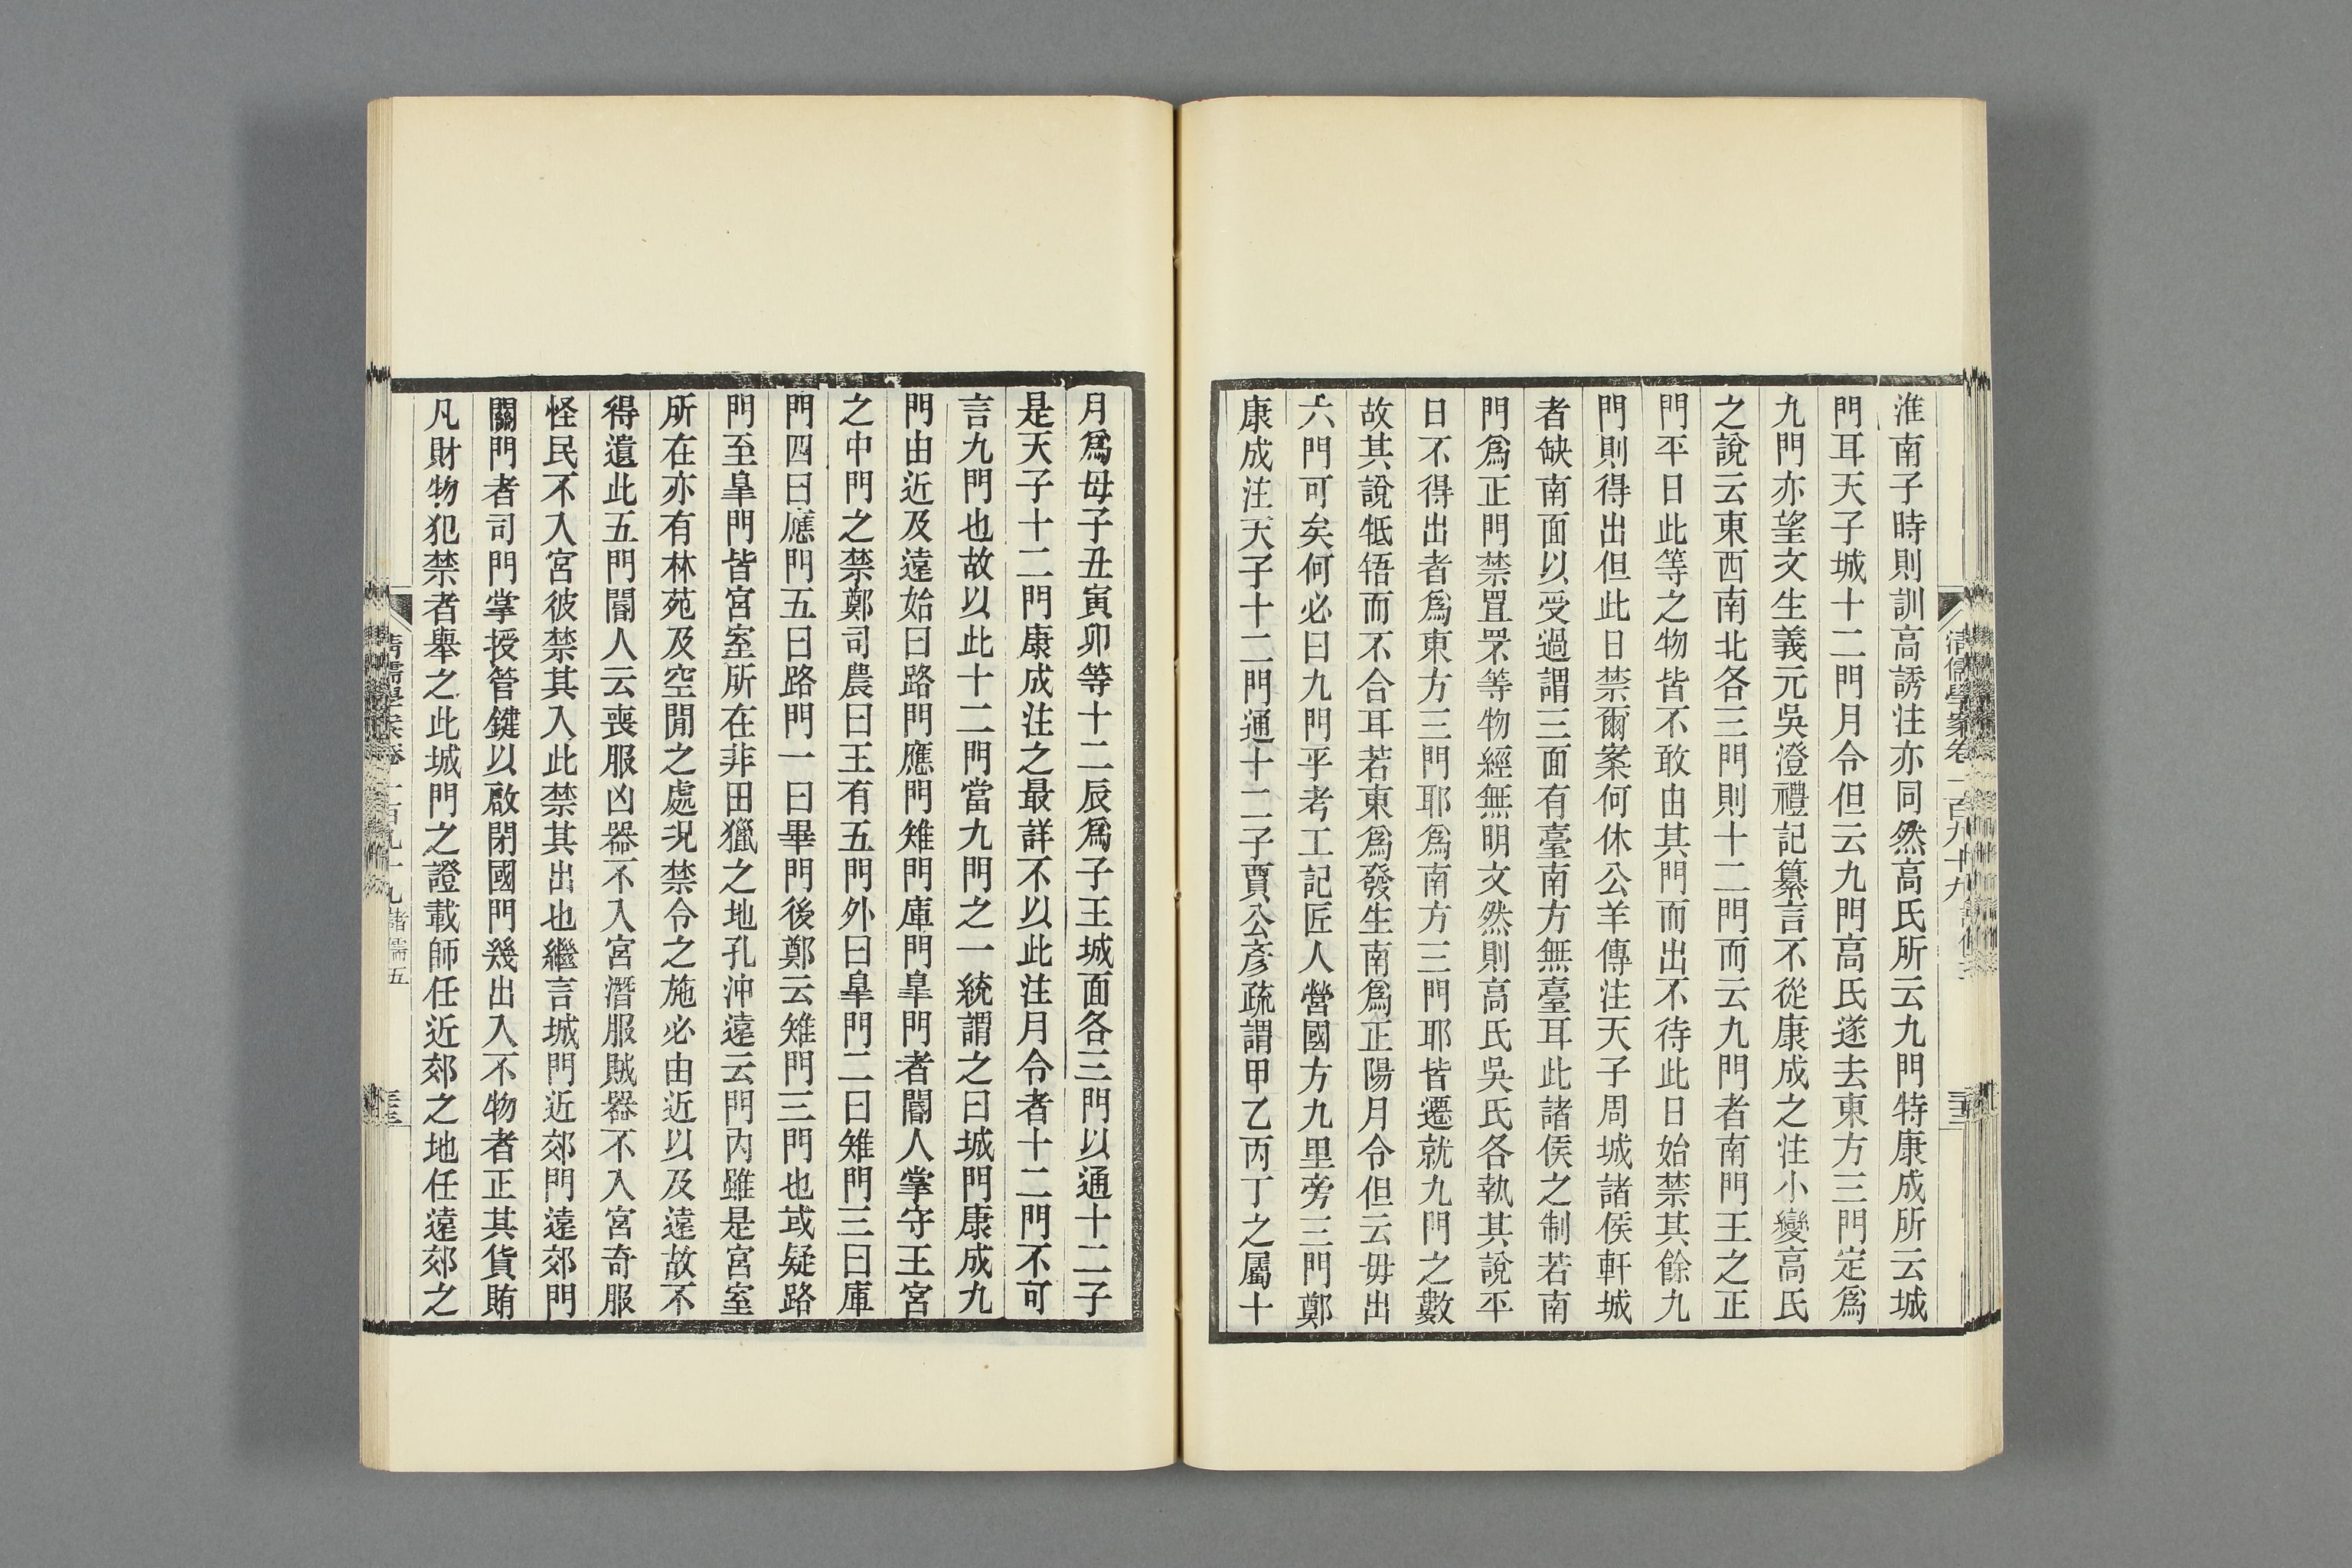 淮南子時則訓高誘注亦同然高氏所云九門特康成所云城
門耳天子城十二門月令但云九門高氏遂去東方三門定爲
九門亦望文生義元吳澄禮記纂言不從康成之注小變高氏
之說云東西南北各三門則十二門而云九門者南門王之正
門平日此等之物皆不敢由其門而出不待此日始禁其餘九
門則得出但此日禁爾案何休公羊傳注天子周城諸侯軒城
者缺南面以受過謂三面有臺南方無臺耳此諸侯之制若南
門爲正門禁罝罘等物經無明文然則高氏吳氏各執其說平
日不得出者爲東方三門耶爲南方三門耶皆遷就九門之數
故其說牴牾而不合耳若東爲發生南爲正陽月令但云毋出
六門可矣何必曰九門乎考工記匠人營國方九里旁三門鄭
康成注天子十二門通十二子賈公彥疏謂甲乙丙丁之屬十
月爲母子丑寅卯等十二辰爲子王城面各三門以通十二子
是天子十二門康成注之最詳不以此注月令者十二門不可
言九門也故以此十二門當九門之一統謂之曰城門康成九
門由近及遠始曰路門應門雉門庫門皐門者閽人掌守王宮
之中門之禁鄭司農曰王有五門外曰皐門二曰雉門三曰庫
門四曰應門五曰路門一曰畢門後鄭云雉門三門也或疑路
門至皐門皆宮室所在非田獵之地孔沖遠云門內雖是宮室
所在亦有林苑及空閒之處況禁令之施必由近以及遠故不
得遺此五門閽人云喪服凶器不入宮潛服賊器不入宮奇服
怪民不入宮彼禁其入此禁其出也繼言城門近郊門遠郊門
關門者司門掌授管鍵以啟閉國門幾出入不物者正其貨賄
凡財物犯禁者舉之此城門之證載師任近郊之地任遠郊之